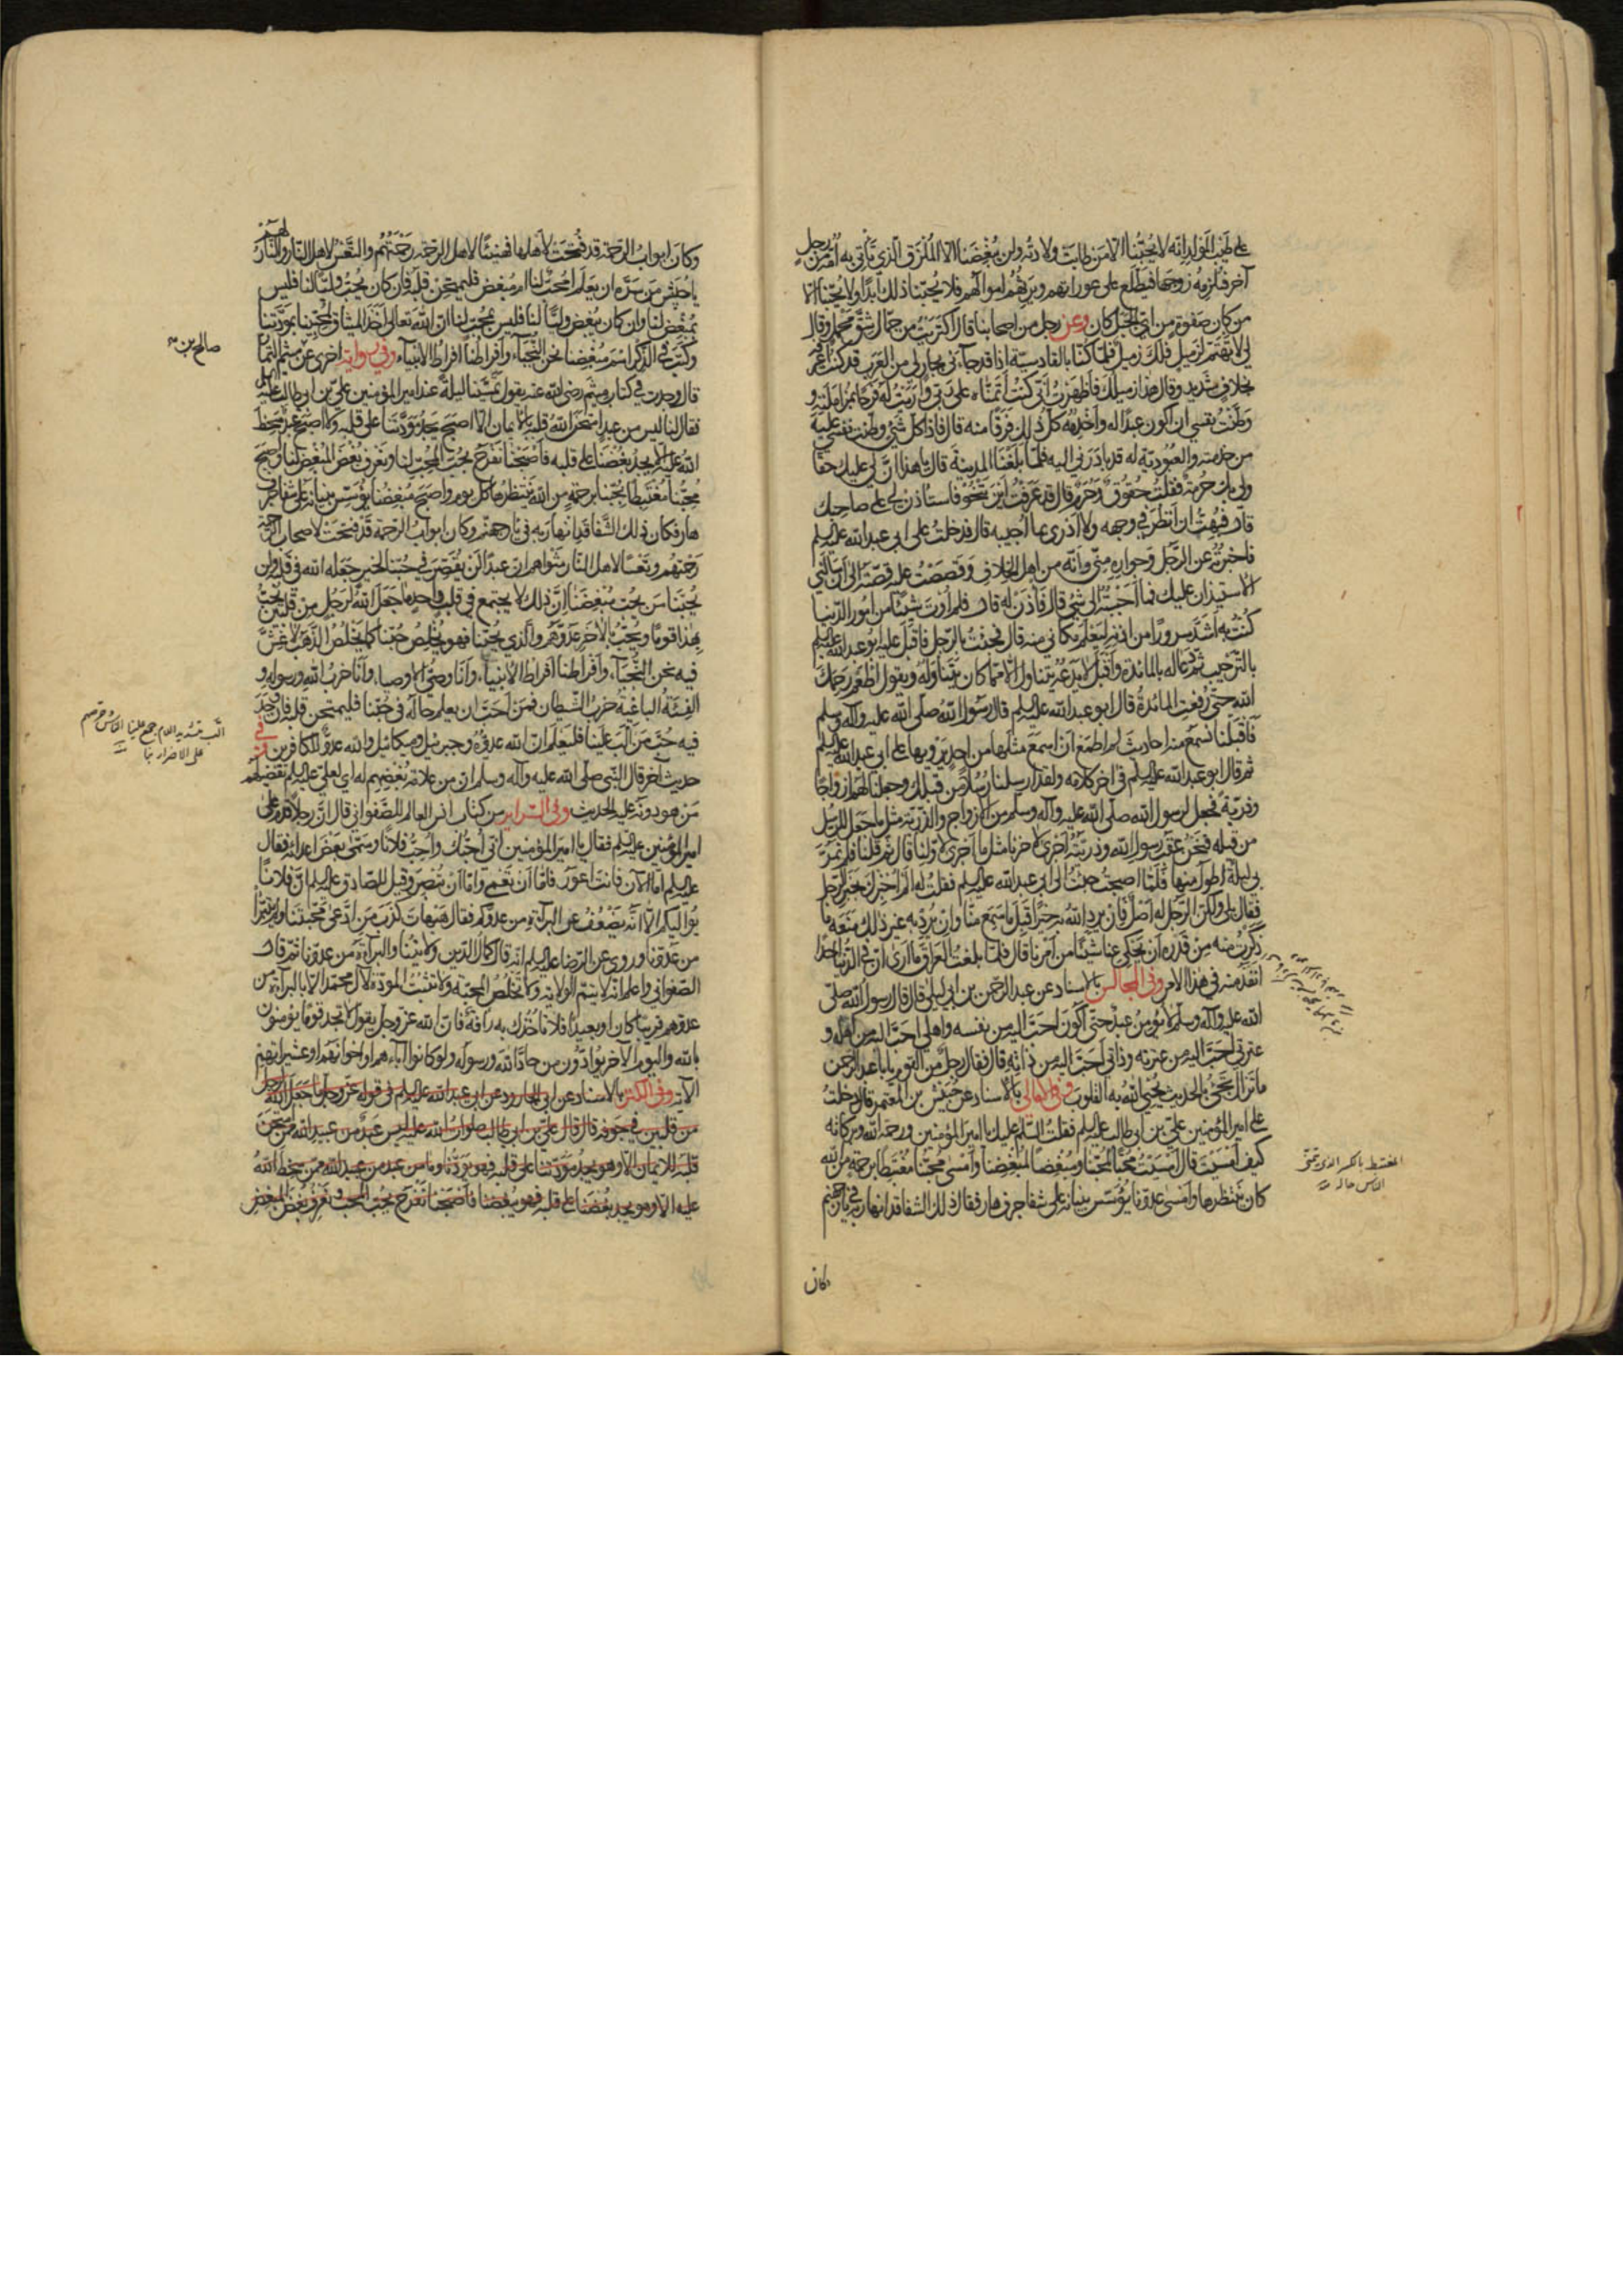 على طيب المولد انه لا يحبنا الا من طابت ولادته ولن يبغضنا الا الملزق الذي تأتي به امه من رجل
آخر فتلزمه زوجها فيطلع على عوراتهم ويرثهم اموالهم فلا يحبنا ذلك ابدا ولا يحبنا الا
من كان صفوة من اي الجيل كان وعن رجل من اصحابنا قال اكتريت من جمال شق محمل وقال
لي لا تهتم لزميل فلك زميل فلما كنا بالقادسية اذا قد جاءني بجار لي من العرب قد كنت اعرفه
بخلاف شديد وقال هذا زميلك فاظهرت اني كنت اتمناه على ربي واريته له فرحا بمزاملته و
وطنت نفسي ان اكون عبدا له واخدمه كل ذلك فرقا منه قال فاذا كل شيء وطنت نفسي عليه
من خدمته والعبودية له قد بادرني اليه فلما بلغنا المدينة قال يا هذا ان لي عليك حقا
ولي بك حرمة فقلت حقوق وحرم قال قد عرفت اين تنحو فاستأذن لي على صاحبك
قال فبهت ان انظر في وجهه ولا ادري بما اجيبه قال فدخلت على ابي عبد الله عليه السلم
فاخبرته عن الرجل وجواره مني وانه من اهل الخلاف وقصصت عليه قصته الى ان سألني
الاستيذان عليك فما اجبته الى شيء قال فأذن له قال فلم اوت شيئا من امور الدنيا
كنت به اشد سرورا من اذنه ليعلم مكاني منه قال فجئت بالرجل فاقبل عليه ابو عبد الله عليه السلم
بالترحيب ثم دعا له بالمائدة واقبل لا يدعه يتناول الا مما كان يتناوله ويقول اطعم رحمك
الله حتى رفعت المائدة قال ابو عبد الله عليه السلم قال رسول الله صلى الله عليه وآله وسلم
فاقبلنا نسمع منه احاديث لم اطمع ان اسمع مثلها من احد يرويها على ابي عبد الله عليه السلم
ثم قال ابو عبد الله عليه السلم في آخر كلامه ولقد ارسلنا رسلا من قبلك وجعلنا لهم ازواجا
وذرية فجعل لرسول الله صلى الله عليه وآله وسلم من الازواج والذرية مثل ما جعل للرسل
من قبله فنحن عقب رسول الله وذريته اجرى لآخرنا مثل ما اجرى لاولنا قال ثم قمنا فلم تمر
بي ليلة اطول منها فلما اصبحت جئت الى ابي عبد الله عليه السلم فقلت له الم اخبرك بخبر الرجل
فقال بلى ولكن الرجل له اصل فان يرد الله به خيرا قبل ما سمع منا وان يرد به غير ذلك منعه ما
ذكرت منه من قدره ان يحكي عنا شيئا من امرنا قال فلما بلغت العراق ما ارى ان في الدنيا احدا
انفذ منه في هذا الامر وفي المجالس بالاسناد عن عبد الرحمن بن ابي ليلى قال قال رسول الله صلى
الله عليه وآله وسلم لا يؤمن عبد حتى اكون احب اليه من نفسه واهلي احب اليه من اهله و
عترتي احب اليه من عترته وذاتي احب اليه من ذاته قال فقال رجل من القوم يا ابا عبد الرحمن
ما تزال تجيء بالحديث يحيي الله به القلوب وفي الامالي بالاسناد عن حبيش بن المعتمر قال دخلت
على امير المؤمنين علي بن ابي طالب عليه السلم فقلت السلم عليك يا امير المؤمنين ورحمة الله وبركاته
كيف امسيت قال امسيت محبا لمحبنا ومبغضا لمبغضنا وامسى محبنا مغتبطا برحمة من الله
كان ينتظرها وامسى عدونا يؤسس بنيانه على شفا جرف هار فكان ذلك الشفا قد انهار به في نار جهنم
وكان
المغتبط بالكسر الذي تمنى
الناس حاله
وكان ابواب الرحمة قد فتحت لاهلها فهنيئا لاهل الرحمة رحمتهم والتعس لاهل النار والنار لهم
يا حبيش من سره ان يعلم امحب لنا ام مبغض فليمتحن قلبه فان كان يحب وليا لنا فليس
بمبغض لنا وان كان يبغض وليا لنا فليس بمحب لنا ان الله تعالى اخذ الميثاق لمحبينا بمودتنا
وكتب في الذكر اسم مبغضنا نحن النجباء وافراطنا افراط الانبياء وفي رواية اخرى عن ميثم التمار
صالح بن
قال وجدت في كتاب ميثم رضي الله عنه يقول تمسينا ليلة عند امير المؤمنين علي بن ابي طالب عليه السلم
فقال لنا ليس من عبد امتحن الله قلبه بالايمان الا اصبح يجد مودتنا على قلبه ولا اصبح عبد ممن سخط
الله عليه الا يجد بغضنا على قلبه فاصبحنا نفرح بحب المحب لنا ونعرف بغض المبغض لنا واصبح
محبنا مغتبطا بحبنا برحمة من الله ينتظرها كل يوم واصبح مبغضنا يؤسس بنيانه على شفا جرف
هار فكان ذلك الشفا قد انهار به في نار جهنم وكان ابواب الرحمة قد فتحت لاصحاب الرحمة
رحمتهم وتعسا لاهل النار مثواهم ان عبدا لن يقصر في حبنا لخير جعله الله في قلبه ولن
يحبنا من يحب مبغضنا ان ذلك لا يجتمع في قلب واحد ما جعل الله لرجل من قلبين يحب
بهذا قوما ويحب بالآخر عدوهم والذي يحبنا فهو يخلص حبنا كما يخلص الذهب لا غش
فيه نحن النجباء وافراطنا افراط الانبياء وانا وصي الاوصياء وانا حزب الله ورسوله و
الفئة الباغية حزب الشيطان فمن احب ان يعلم حاله في حبنا فليمتحن قلبه فان وجد
فيه حب من الب علينا فليعلم ان الله عدوه وجبريل وميكائيل والله عدو للكافرين وفي
الب بتشديد اللام جمع علينا الناس وحرضهم
على الاضرار بنا
حديث آخر قال النبي صلى الله عليه وآله وسلم ان من علامة بغضهم له اي لعلي عليه السلم تفضيلهم
من هو دونه عليه الحديث وفي السرائر من كتاب انس العالم للصفواني قال ان رجلا قدم على
امير المؤمنين عليه السلم فقال يا امير المؤمنين اني احبك واحب فلانا وسمى بعض اعدائه فقال
عليه السلم اما الآن فانت اعور فاما ان تعمى واما ان تبصر وقيل للصادق عليه السلم ان فلانا
يواليكم الا انه يضعف عن البرآءة من عدوكم فقال هيهات كذب من ادعى محبتنا ولم يتبرأ
من عدونا وروي عن الرضا عليه السلم انه قال كمال الدين ولايتنا والبرآءة من عدونا ثم قال
الصفواني واعلم انه لا يتم الولاية ولا تخلص المحبة ولا تثبت المودة لآل محمد الا بالبرآءة من
عدوهم قريبا كان او بعيدا فلا تأخذك به رأفة فان الله عز وجل يقول لا تجد قوما يؤمنون
بالله واليوم الآخر يوادون من حاد الله ورسوله ولو كانوا آباءهم او ابناءهم او اخوانهم او عشيرتهم
الآية وفي الكنز بالاسناد عن ابي الجارود عن ابي عبد الله عليه السلم في قوله عز وجل ما جعل الله لرجل
من قلبين في جوفه قال قال علي بن ابي طالب صلوات الله عليه ليس عبد من عبيد الله ممن امتحن
قلبه للايمان الا وهو يجد مودتنا على قلبه فهو يودنا وما من عبد من عبيد الله ممن سخط الله
عليه الا وهو يجد بغضنا على قلبه فهو يبغضنا فاصبحنا نفرح بحب المحب ونعرف بغض المبغض